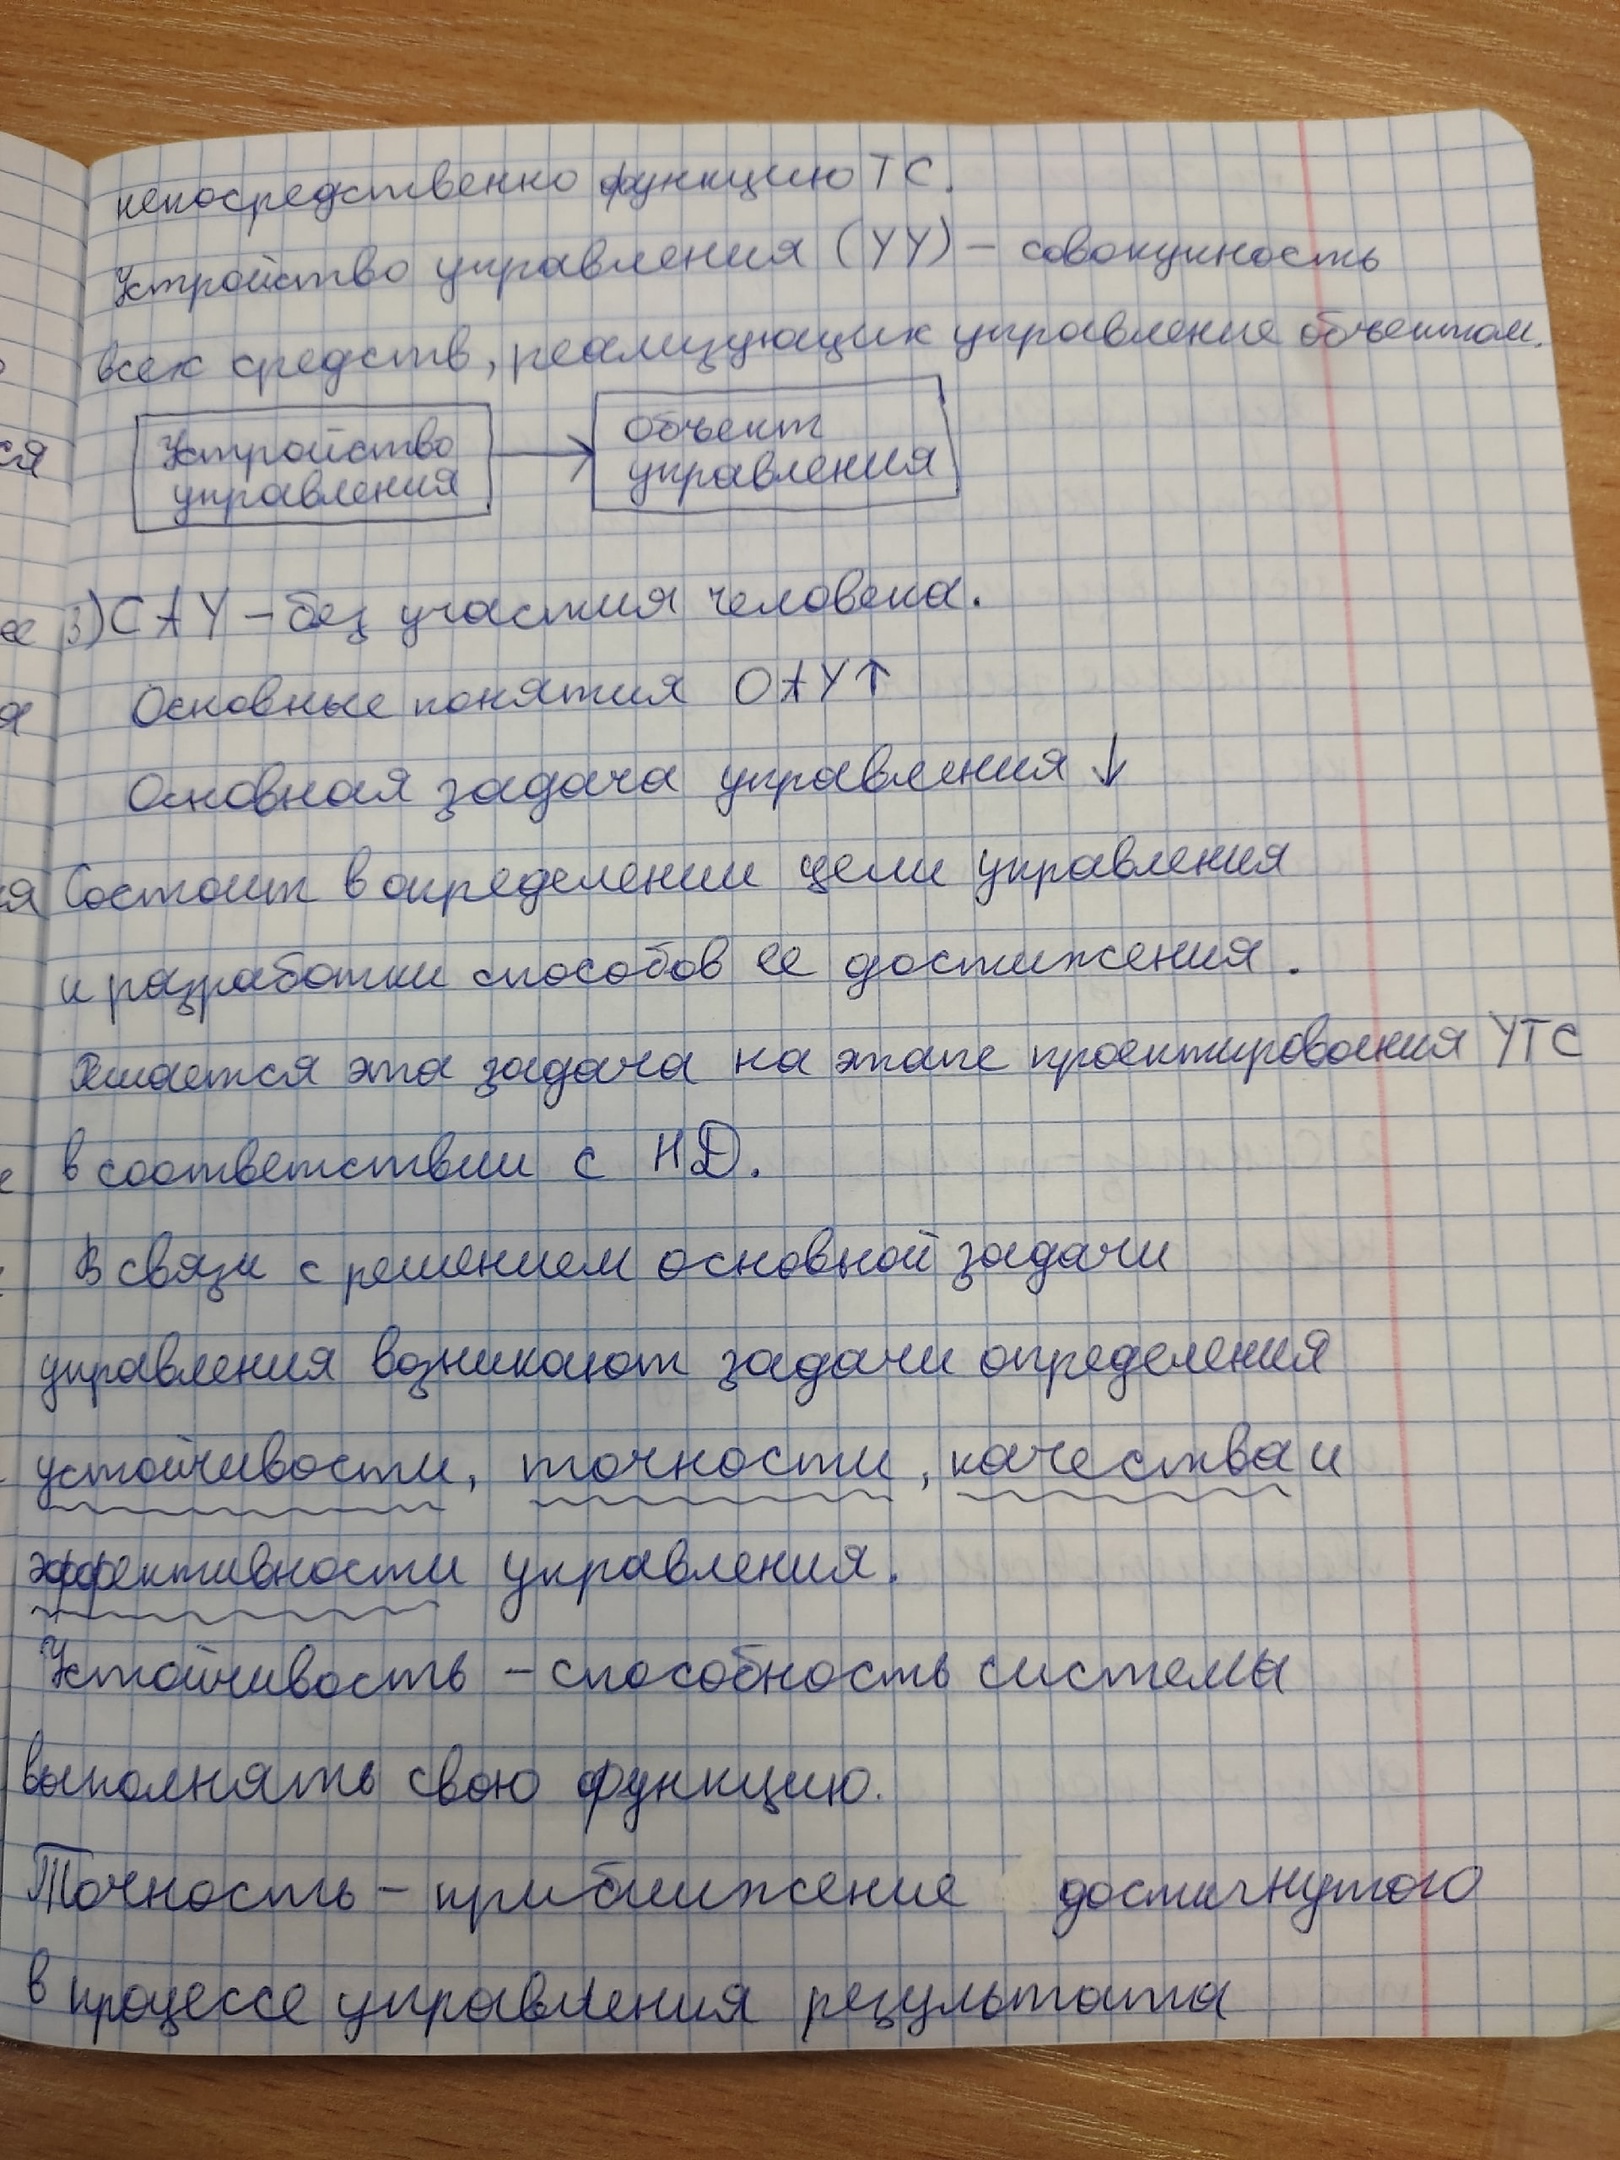 непосредственно функцию ТС.
Устройство управления (УУ) – совокупность
всех средств, реализующих управление объектом.
Устройство управления → объект управления
3) САУ – без участия человека.
Основные понятия ОАУ↑
Основная задача управления ↓
Состоит в определении цели управления
и разработки способов ее достижения.
Решается эта задача на этапе проектирования УТС
в соответствии с НД.
В связи с решением основной задачи
управления возникают задачи определения
устойчивости, точности, качества и
эффективности управления.
Устойчивость – способность системы
выполнять свою функцию.
Точность – приближение достигнутого
в процессе управления результата